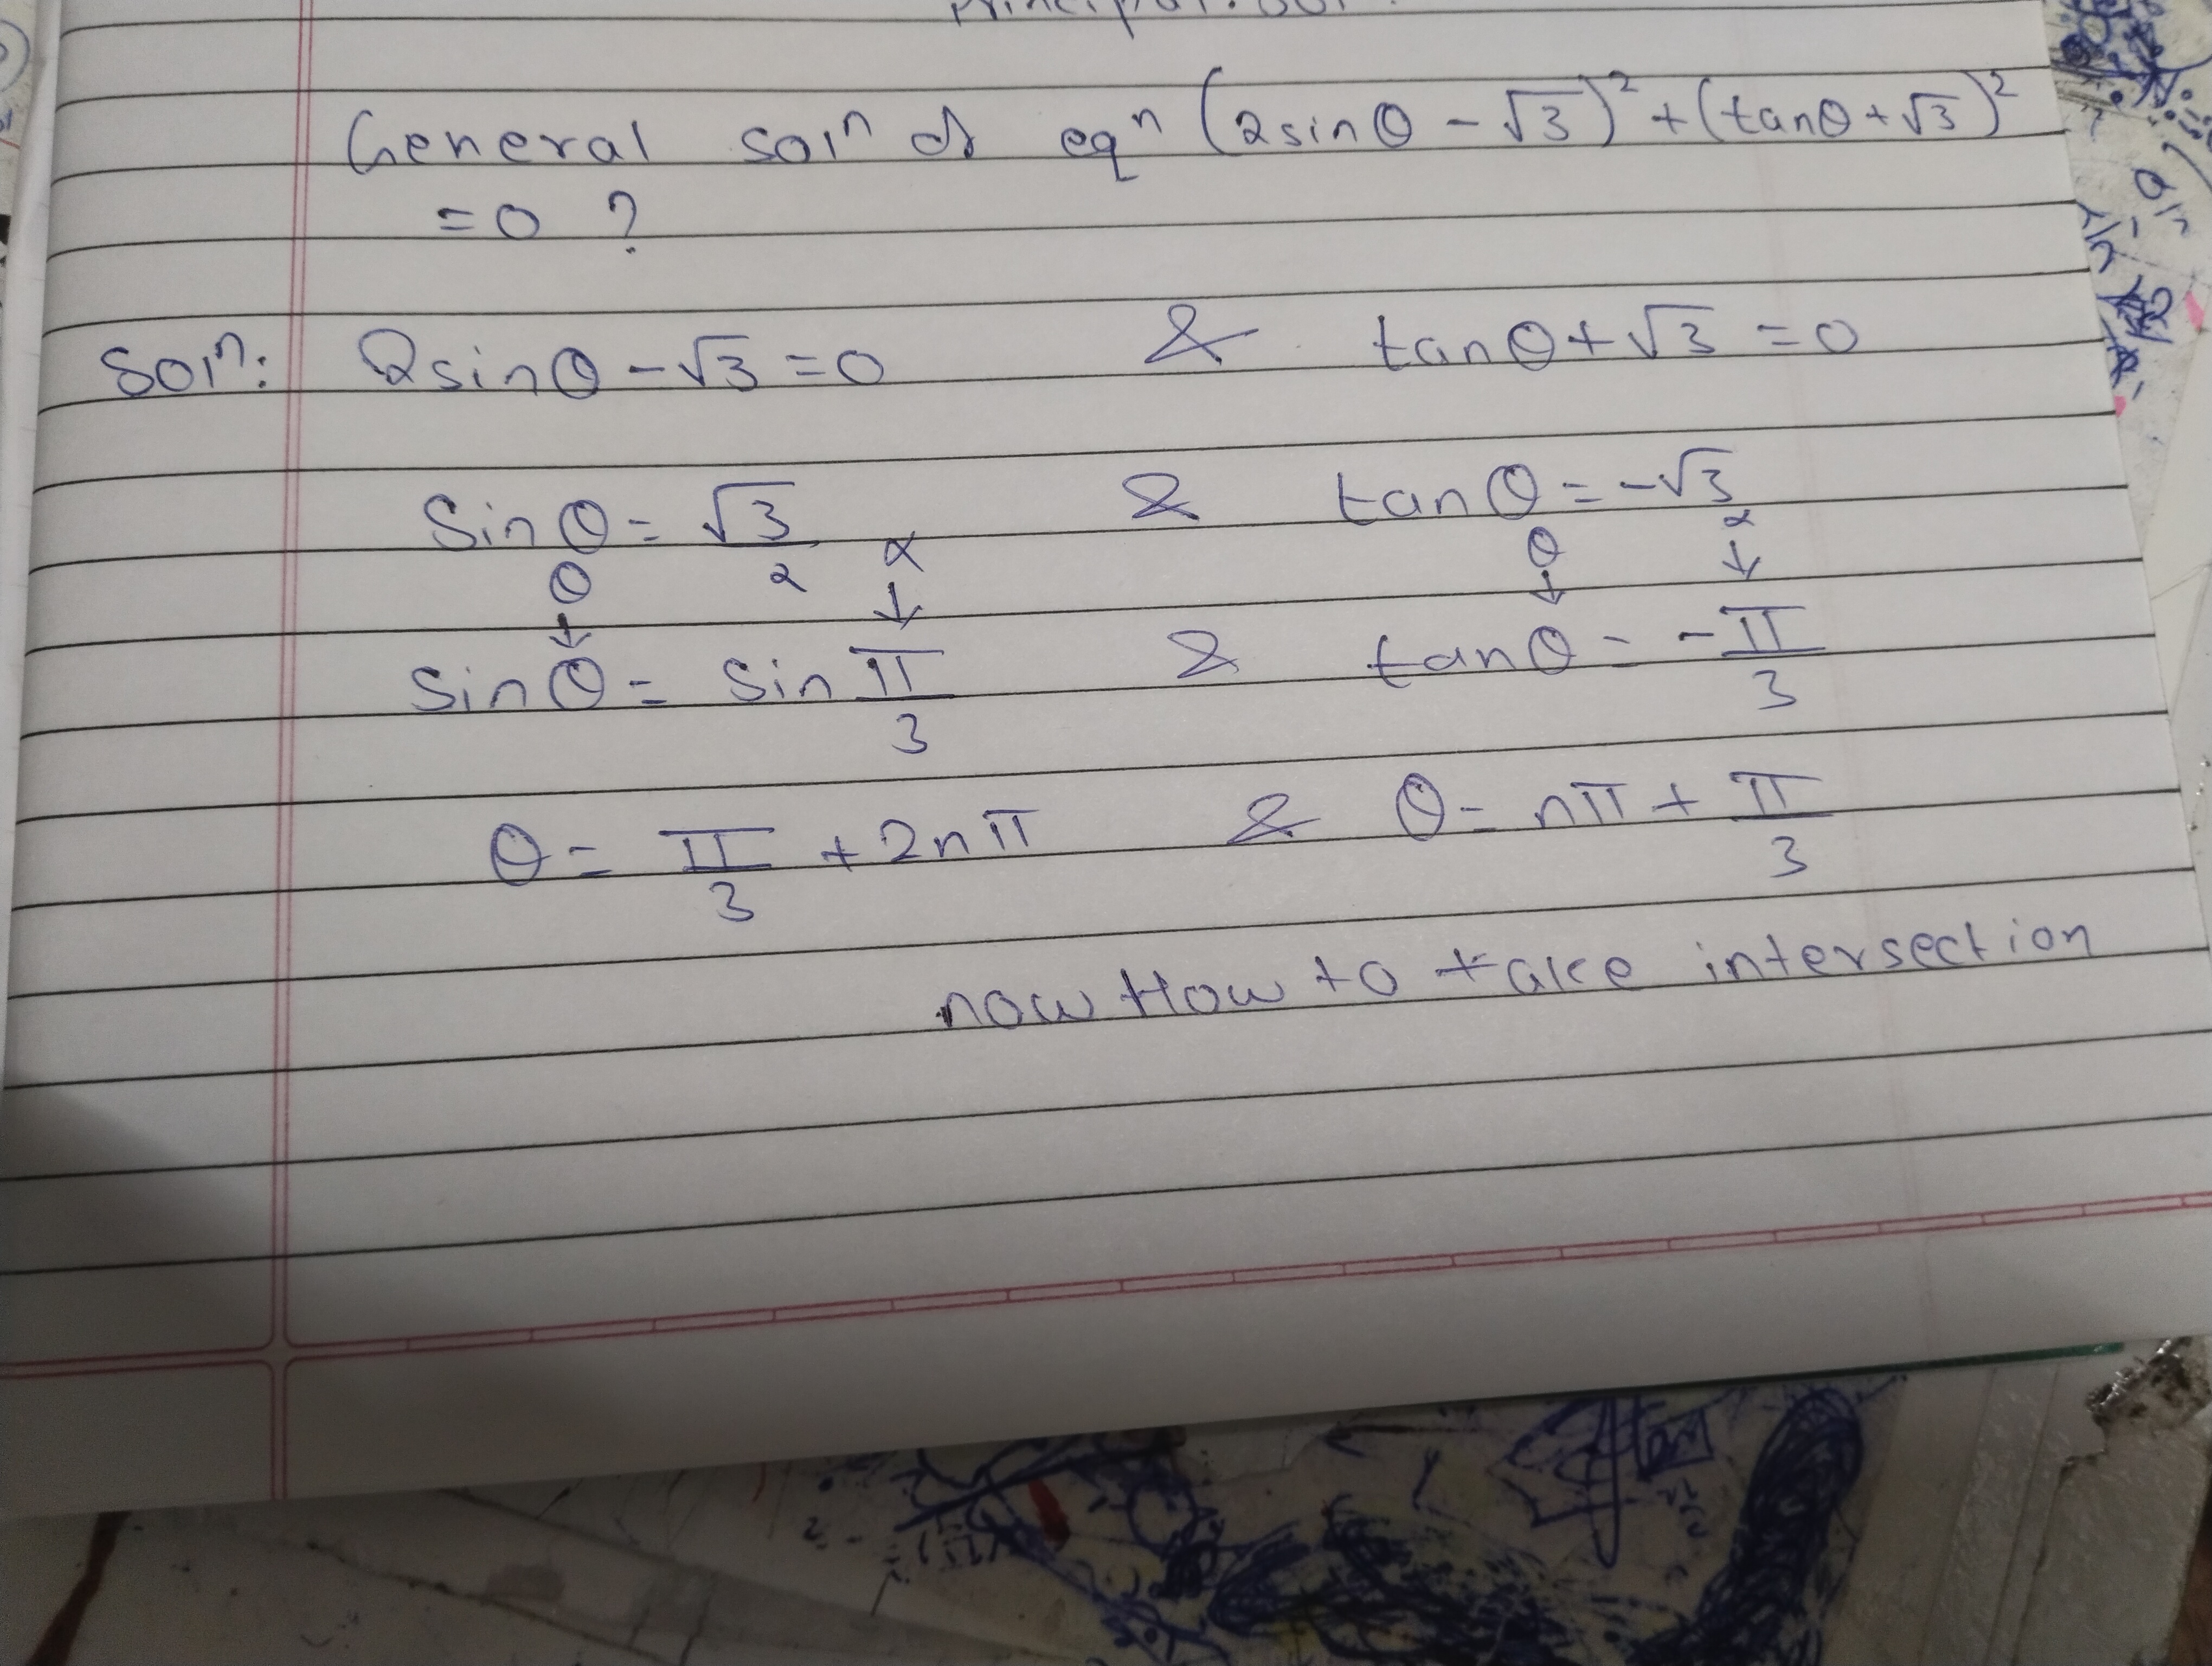 General solⁿ of eqⁿ (2sinθ - √3)² + (tanθ + √3)²
= 0 ?
Solⁿ: 2sinθ - √3 = 0 & tanθ + √3 = 0
Sinθ = √3/2 & tanθ = -√3
θ α θ α
↓ ↓ ↓ ↓
Sinθ = Sin π/3 & tanθ = -π/3
θ = π/3 + 2nπ & θ = nπ + π/3
now How to take intersection